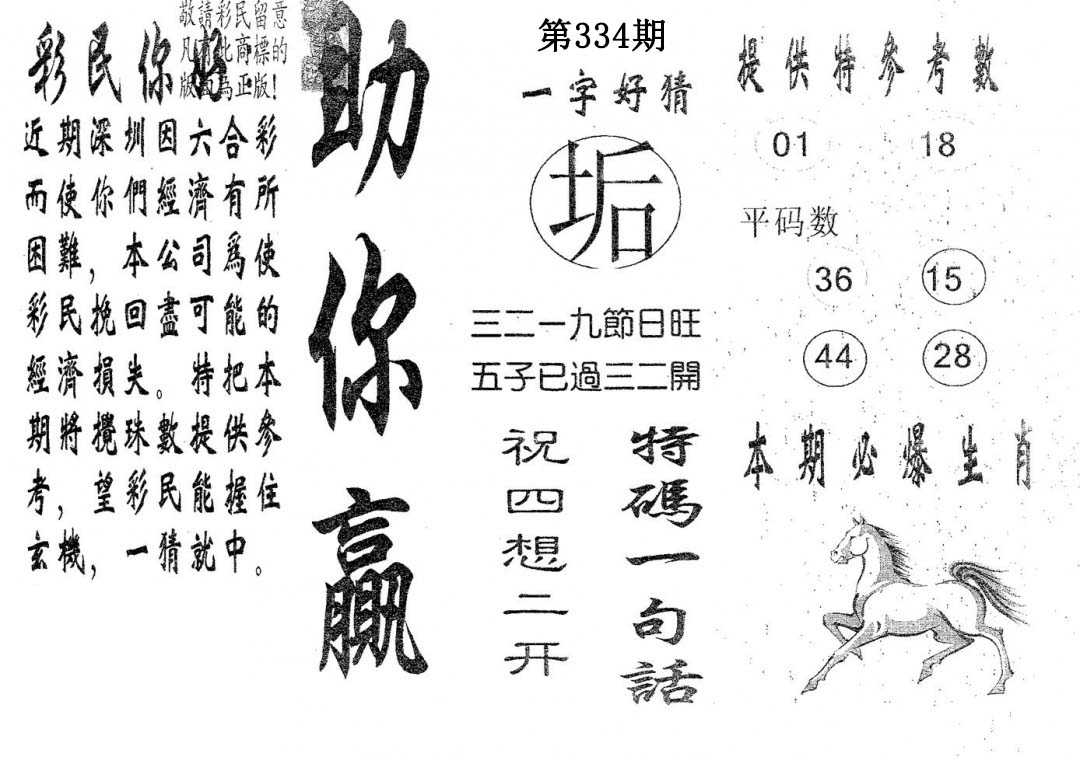 敬請彩民留意
版!
彩民你好
近期深圳因六合彩
而使你們經濟有所
困難，本公司爲使
彩民挽回盡可能的
經濟損失。特把本
期將攪珠數提供參
考，望彩民能握住
玄機，一猜就中。
助你贏
第334期
一字好猜
垢
三二一九節日旺
五子已過三二開
特碼一句話
祝四想二开
提供特參考數
01 18
平码数
36 15
44 28
本期必爆生肖